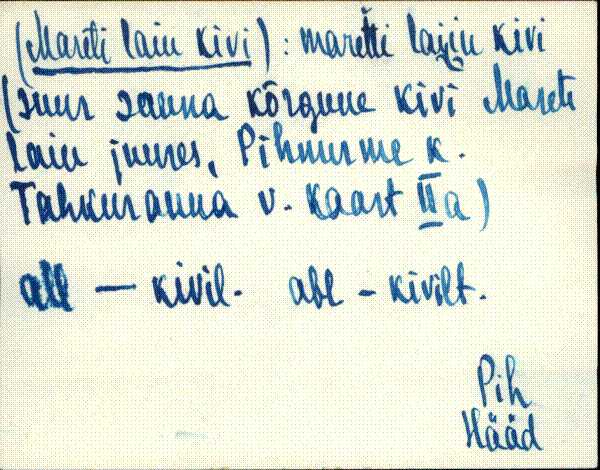 (Mareti laiu kivi) : maretti laiju kivi
(suur sauna kõrgune kivi Mareti
laiu juures, Pihnurme k.
Tahkuranna v. Kaart IIa)
all — kivil. abl – kivilt.
Pih
Hääd